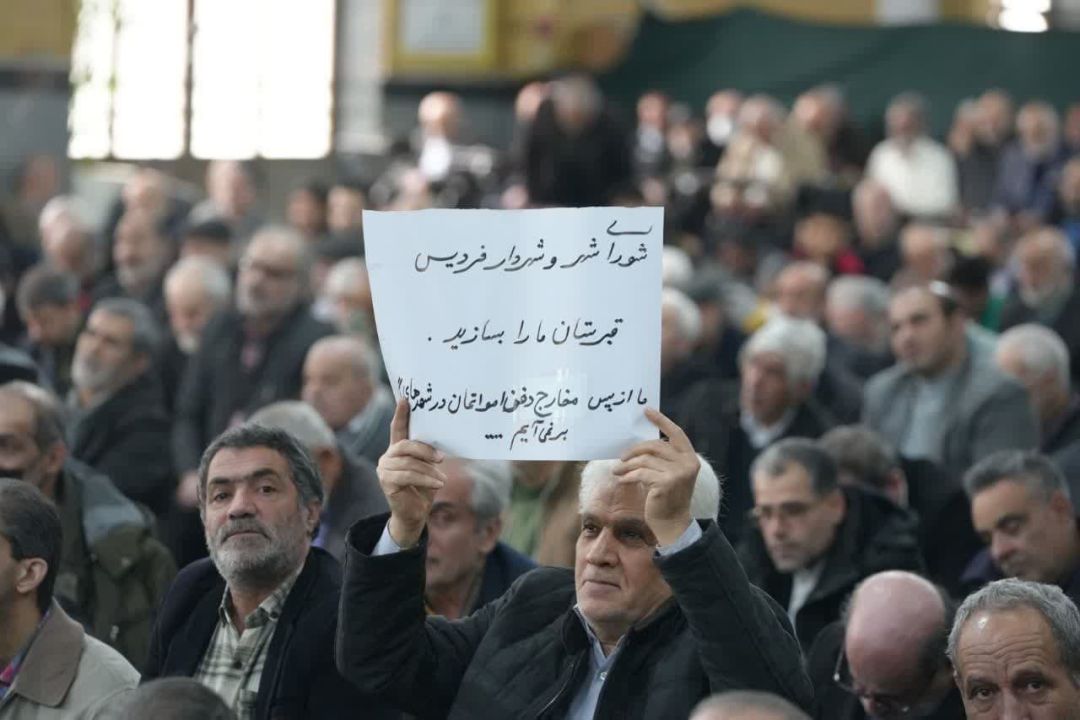 شورای شهر و شهردار فردیس
قبرستان ما را بسازید .
ما از پس مخارج دفن امواتمان در شهرهای "
بر نمی آییم ....